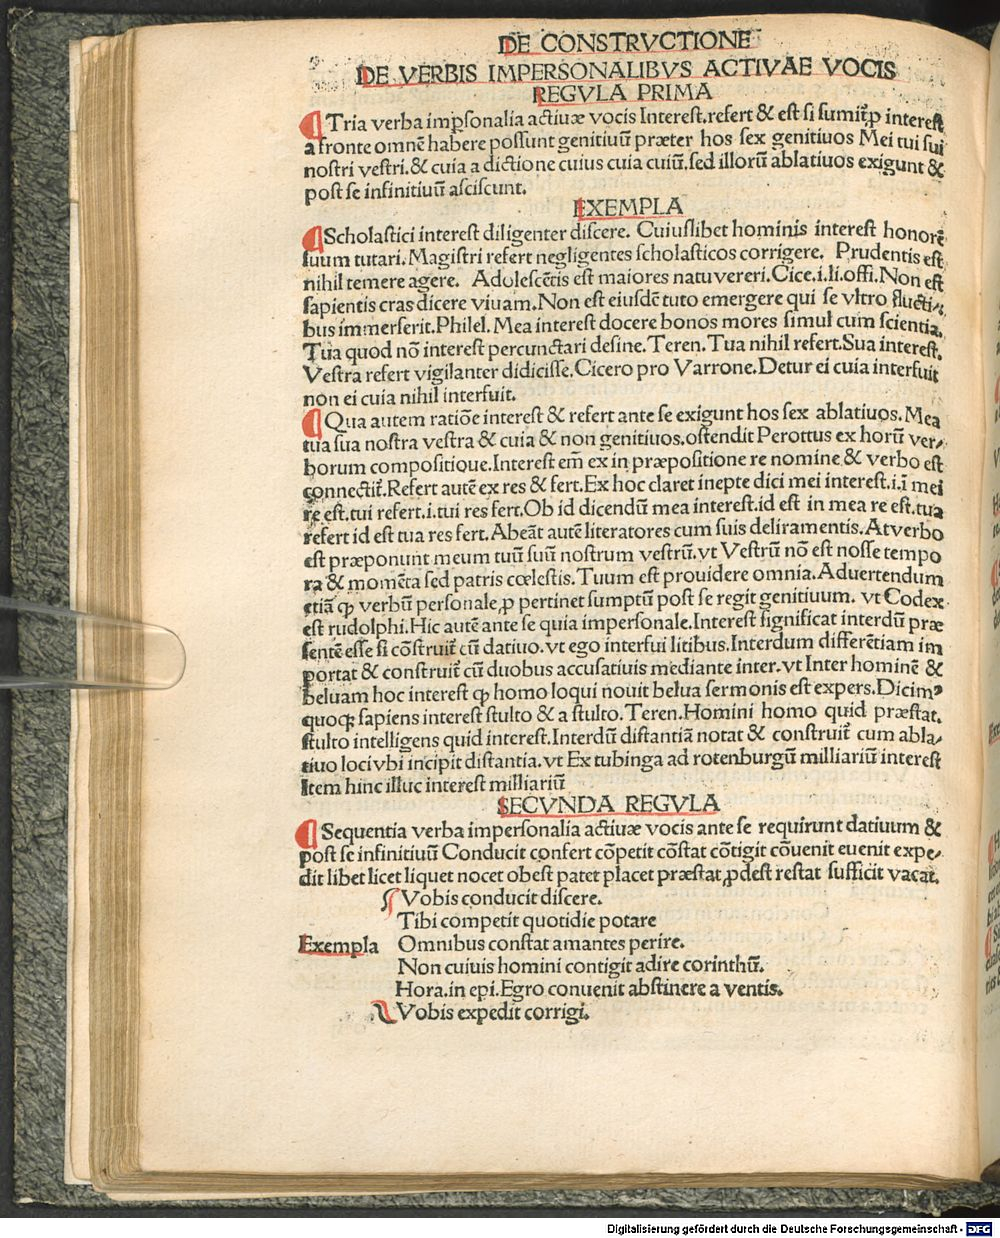 DE CONSTRVCTIONE
DE VERBIS IMPERSONALIBVS ACTIVAE VOCIS
REGVLA PRIMA
Tria verba imꝑsonalia actiuæ vocis Interest.refert & est si sumit̃ ꝓ interest
a fronte omnẽ habere possunt genitiuũ præter hos sex genitiuos Mei tui sui
nostri vestri.& cuia a dictione cuius cuia cuiũ.sed illorũ ablatiuos exigunt &
post se infinitiuũ asciscunt.
EXEMPLA
Scholastici interest diligenter discere. Cuiuslibet hominis interest honorẽ
suum tutari. Magistri refert negligentes scholasticos corrigere. Prudentis est
nihil temere agere. Adolescẽtis est maiores natu vereri. Cice.i.li.offi.Non est
sapientis cras dicere viuam.Non est eiusdẽ tuto emergere qui se vltro flucti⸗
bus immerserit.Philel. Mea interest docere bonos mores simul cum scientia.
Tua quod nõ interest percunctari desine.Teren.Tua nihil refert.Sua interest.
Vestra refert vigilanter didicisse.Cicero pro Varrone.Detur ei cuia interfuit
non ei cuia nihil interfuit.
Qua autem ratiõe interest & refert ante se exigunt hos sex ablatiuos. Mea
tua sua nostra vestra & cuia & non genitiuos.ostendit Perottus ex horũ ver⸗
borum compositique.Interest em̃ ex in præpositione re nomine & verbo est
connectit̃.Refert autẽ ex res & fert.Ex hoc claret inepte dici mei interest.i.ĩ mei
re est.tui refert.i.tui res fert.Ob id dicendũ mea interest.id est in mea re est.tua
refert id est tua res fert. Abeãt autẽ literatores cum suis deliramentis. At verbo
est præponunt meum tuũ suũ nostrum vestrũ.vt Vestrũ nõ est nosse tempo
ra & momẽta sed patris cœlestis. Tuum est prouidere omnia. Aduertendum
etiã ꝙ verbũ personale ꝓ pertinet sumptũ post se regit genitiuum. vt Codex
est rudolphi.Hic autẽ ante se quia impersonale.Interest significat interdũ præ
sentẽ esse si cõstruit̃ cũ datiuo.vt ego interfui litibus.Interdum differẽtiam im
portat & construit̃ cũ duobus accusatiuis mediante inter.vt Inter hominẽ &
beluam hoc interest ꝙ homo loqui nouit belua sermonis est expers.Dicimꝰ
quoqꝫ sapiens interest stulto & a stulto. Teren.Homini homo quid præstat.
stulto intelligens quid interest.Interdũ distantiã notat & construit̃ cum abla⸗
tiuo loci vbi incipit distantia.vt Ex tubinga ad rotenburgũ milliariũ interest
Item hinc illuc interest milliariũ
SECVNDA REGVLA
Sequentia verba impersonalia actiuæ vocis ante se requirunt datiuum &
post se infinitiuũ Conducit confert cõpetit cõstat cõtigit cõuenit euenit expe⸗
dit libet licet liquet nocet obest patet placet præstat ꝓdest restat sufficit vacat.
Vobis conducit discere.
Tibi competit quotidie potare
Exempla Omnibus constat amantes perire.
Non cuiuis homini contigit adire corinthũ.
Hora.in epi.Egro conuenit abstinere a ventis.
Vobis expedit corrigi.
Digitalisierung gefördert durch die Deutsche Forschungsgemeinschaft - DFG